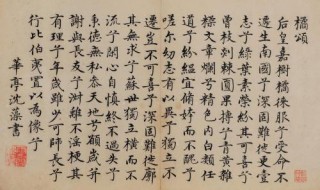 橘頌
后皇嘉樹橘徠服兮受命不
遷生南國兮深固難徙更壹
志兮綠葉素榮紛其可喜兮
曾枝剡棘圓果摶兮青黃雜
糅文章爛兮精色內白類任
道兮紛緼宜脩姱而不醜兮
嗟爾幼志有以異兮獨立不
遷豈不可喜兮深固難徙廓
其無求兮蘇世獨立橫而不
流兮閉心自慎終不過失兮
秉德無私參天地兮願歲并
謝與長友兮淑離不淫梗其
有理兮年歲雖少可師長兮
行比伯夷置以為像兮
華亭沈藻書